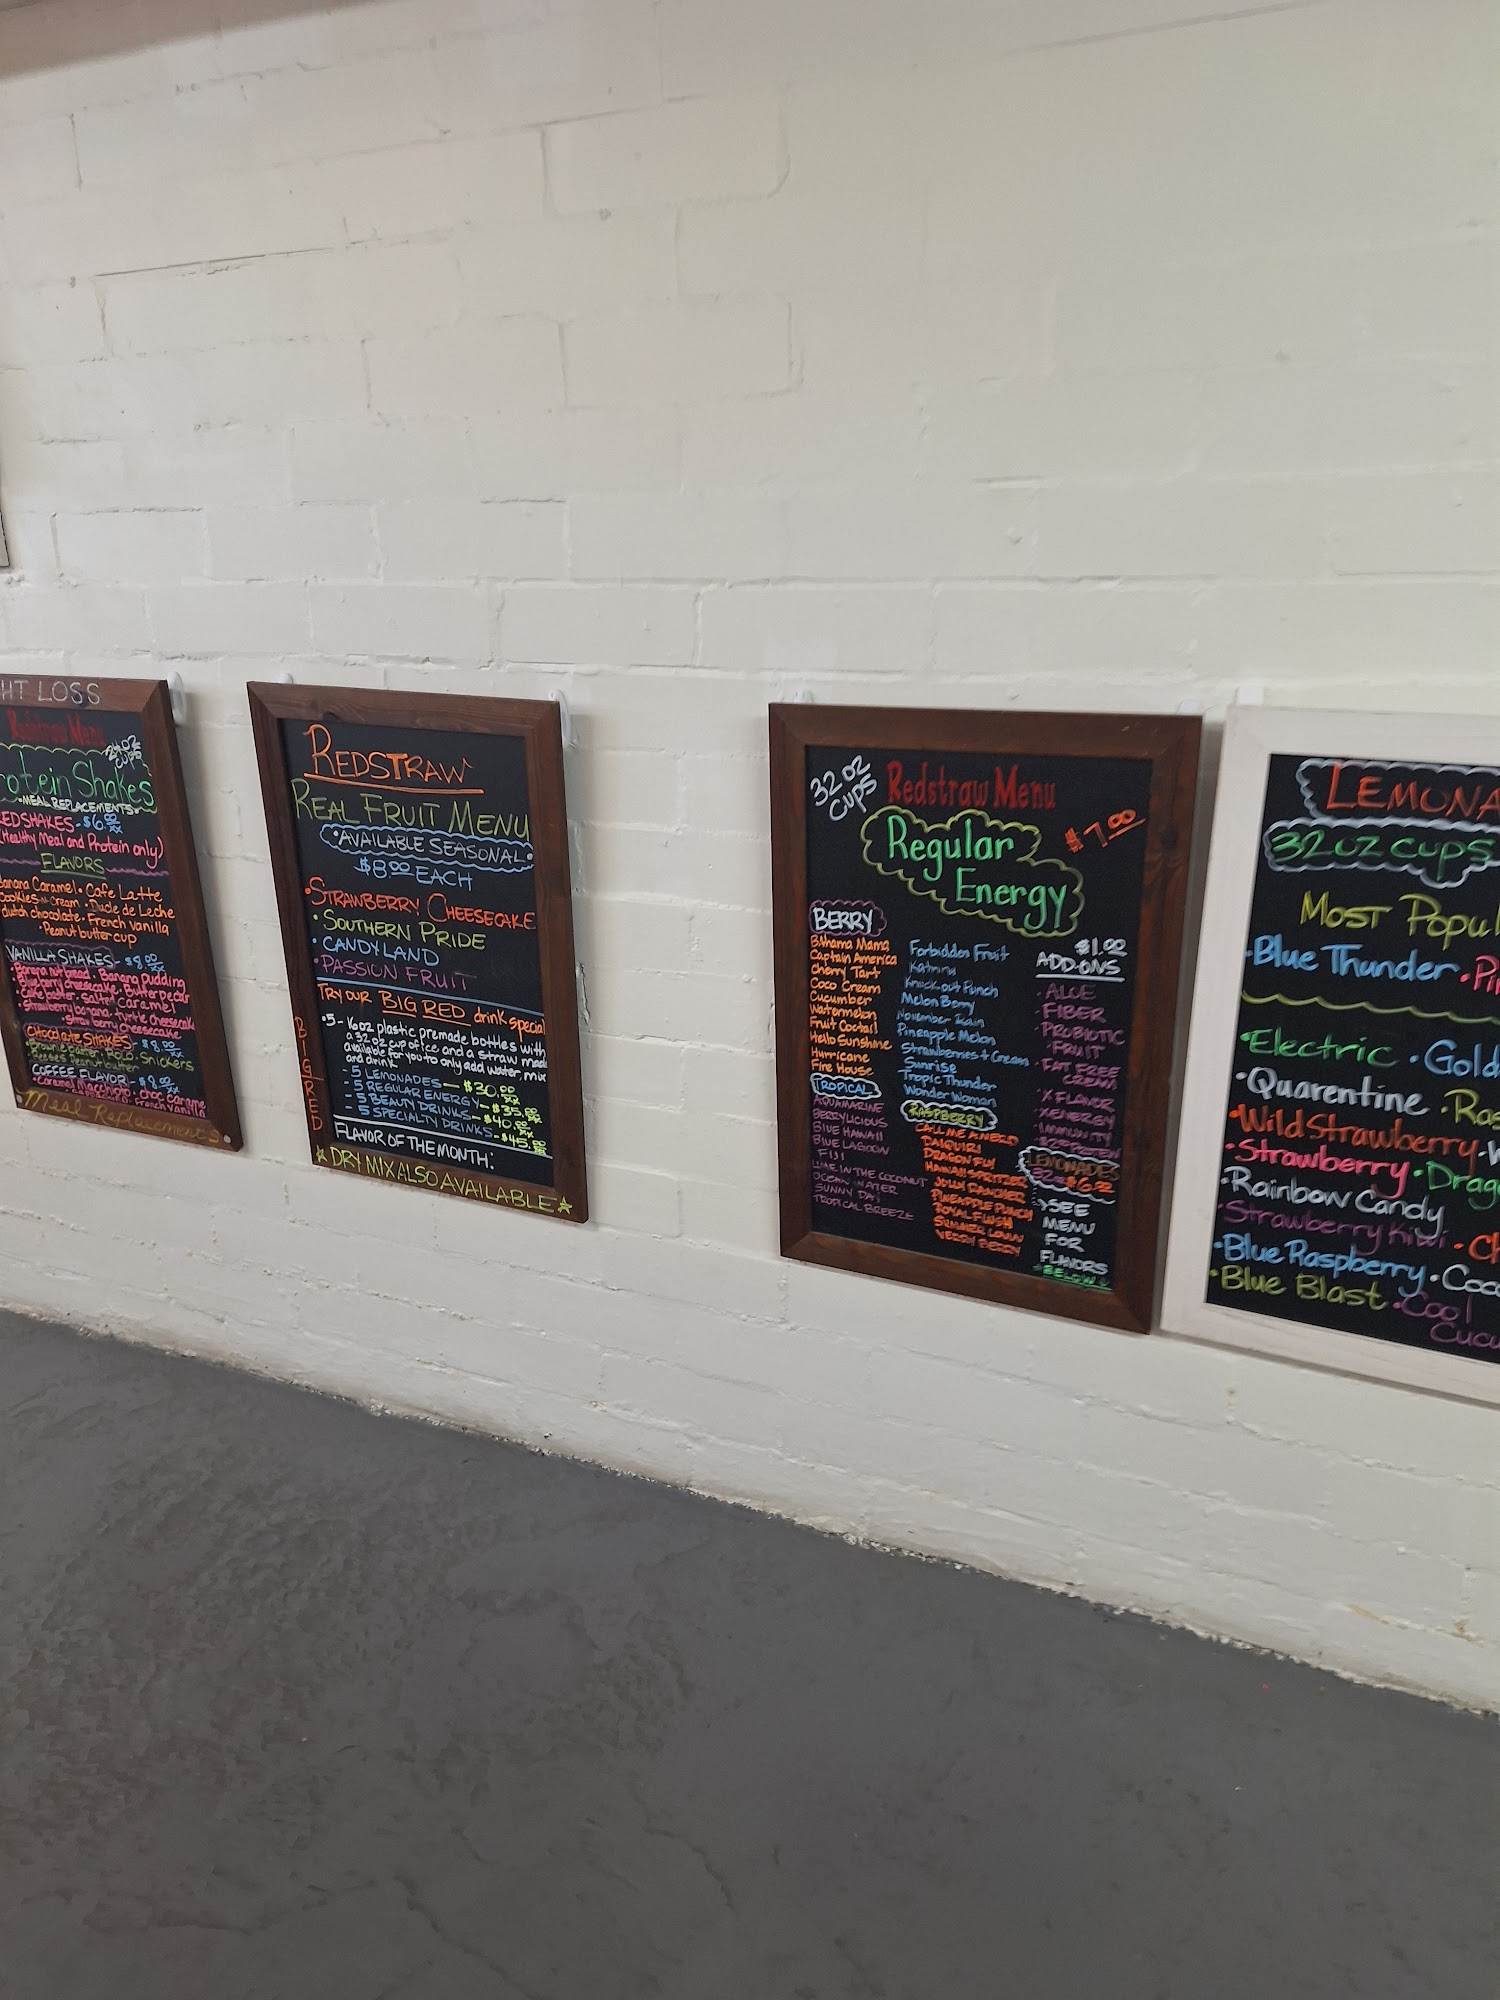 HT LOSS
Redstraw Menu
24 oz
CUPS
rotein Shakes
MEAL REPLACEMENTS
EDSHAKES - $6.00
(Healthy Meal and Protein only)
FLAVORS
anana Caramel • Cafe Latte
cookies n cream • Dulce de Leche
dutch chocolate • French vanilla
• Peanut butter cup
VANILLA SHAKES - $8.00
• Banana nut bread • Banana pudding
• Blueberry cheesecake • Butter pecan
• Cake batter • salted caramel
• Strawberry banana • turtle cheesecake
• Strawberry cheesecake
CHOCOLATE SHAKES - $8.00
Rolo • Snickers
Reeses Peanut butter
COFFEE FLAVOR - $8.00
• Caramel Macchiato • choc caramel
French vanilla
Meal Replacements
REDSTRAW
REAL FRUIT MENU
• AVAILABLE SEASONAL •
$8.00 EACH
• STRAWBERRY CHEESECAKE
• SOUTHERN PRIDE
• CANDYLAND
• PASSION FRUIT
TRY OUR BIG RED drink special
BIG RED
• 5 - 16oz plastic premade bottles with
a 32 oz cup of ice and a straw made
available for you to only add water, mix
and drink
- 5 LEMONADES — $30.00
- 5 REGULAR ENERGY - $35.00
- 5 BEAUTY DRINKS - $40.00
- 5 SPECIALTY DRINKS - $45.00
FLAVOR OF THE MONTH:
DRY MIX ALSO AVAILABLE
32 oz
CUPS
Redstraw Menu
$7.00
Regular
Energy
BERRY
Bahama Mama
Captain America
Cherry Tart
Coco Cream
Cucumber
Watermelon
Fruit Cocktail
Hello Sunshine
Hurricane
Fire House
TROPICAL
AQUAMARINE
BERRYLICIOUS
BLUE HAWAII
BLUE LAGOON
FIJI
LIME IN THE COCONUT
OCEAN WATER
SUNNY DAY
TROPICAL BREEZE
Forbidden Fruit
Katrina
Knock out Punch
Melon Berry
November Rain
Pineapple Melon
Strawberries + Cream
Sunrise
Tropic Thunder
Wonder Woman
RASPBERRY
CALL ME A NERD
DAIQUIRI
DRAGON FLY
HAWAII SPRITZER
JOLLY RANCHER
PINEAPPLE PUNCH
ROYAL FLUSH
SUMMER LOVIN
VERRY BERRY
$1.00
ADD-ONS
• ALOE
• FIBER
• PROBIOTIC
• FRUIT
• FAT FREE
CREAM
• X FLAVOR
• XENERGY
• IMMUNITY
PROTEIN
LEMONADES
$6.00
SEE
MENU
FOR
FLAVORS
BELOW
LEMONA
32 oz cups
MOST POPUL
• Blue Thunder • Pi
• Electric • Gold
• Quarentine • Ras
• Wild Strawberry • W
• Strawberry • Drag
• Rainbow Candy
• Strawberry Kiwi • Ch
• Blue Raspberry • Coco
• Blue Blast • Cool
Cucu